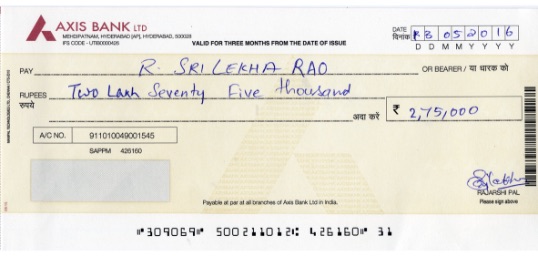 AXIS BANK LTD
MEHDIPATNAM, HYDERABAD [AP], HYDERABAD, 500028
IFS CODE - UTIB0000426
VALID FOR THREE MONTHS FROM THE DATE OF ISSUE
DATE
दिनांक 052016
D D M M Y Y Y Y
PAY R. SRI LEKHA RAO OR BEARER / या धारक को
RUPEES Two Lakh Seventy Five thousand
रुपये अदा करें ₹ 2,75,000
A/C NO. 911010049001545
SAPPM 426160
RAJARSHI PAL
Please sign above
Payable at par at all branches of Axis Bank Ltd in India.
⑈309069⑈ 500211012⑆ 426160⑈ 31